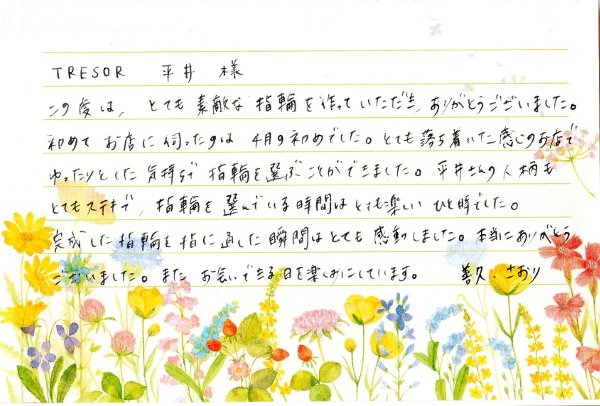 TRESOR 平井 様
この度は、とても素敵な指輪を作っていただき、ありがとうございました。
初めてお店に伺ったのは4月の初めでした。とても落ち着いた感じのお店で
ゆったりとした気持ちで指輪を選ぶことができました。平井さんの人柄も
とてもステキで、指輪を選んでいる時間はとても楽しいひと時でした。
完成した指輪を指に通した瞬間はとても感動しました。本当にありがとう
ございました。またお会いできる日を楽しみにしています。 善久・さおり